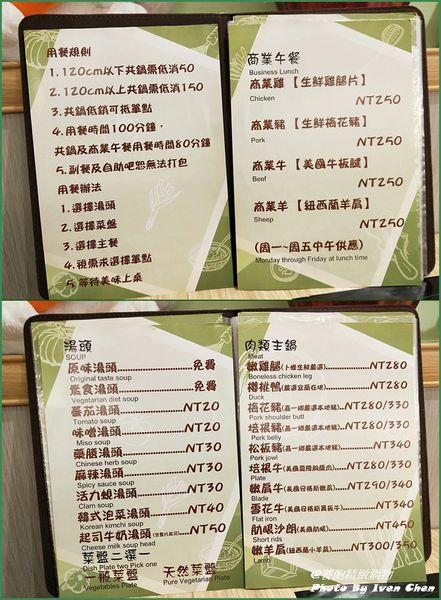 用餐規則
1.120cm以下共鍋需低消50
2.120cm以上共鍋需低消150
3.共鍋低銷可抵單點
4.用餐時間100分鐘，
共鍋及商業午餐用餐時間80分鐘
5.副餐及自助吧恕無法打包
用餐辦法
1.選擇湯頭
2.選擇菜盤
3.選擇主餐
4.視需求選擇單點
5.等待美味上桌
商業午餐
Business Lunch
商業雞【生鮮雞腿片】
Chicken
NT250
商業豬【生鮮梅花豬】
Pork
NT250
商業牛【美國牛板腱】
Beef
NT250
商業羊【紐西蘭羊肩】
Sheep
NT250
(周一~周五中午供應)
Monday through Friday at lunch time
湯頭
SOUP
原味湯頭..........免費
Original taste soup
素食湯頭..........免費
Vegetarian diet soup
蕃茄湯頭..........NT20
Tomato soup
味噌湯頭..........NT20
Miso soup
藥膳湯頭..........NT30
Chinese herb soup
麻辣湯頭..........NT30
Spicy sauce soup
活力蜆湯頭..........NT30
Clam soup
韓式泡菜湯頭..........NT40
Korean kimchi soup
起司牛奶湯頭 NT50
Cheese milk soup
菜盤二選一
Dish Plate two Pick one
一般菜盤
Vegetables Plate
天然菜盤
Pure Vegetarian Plate
肉類主鍋
Meat
嫩雞腿 NT280
Boneless chicken leg
櫻桃鴨 NT280
Duck
梅花豬 NT280/330
Pork shoulder butt
培根豬 NT280/330
Pork belly
松板豬 NT340
Pork jowl
培根牛 NT280/330
Plate
嫩肩牛 NT290/340
Blade
雪花牛 NT340
Flat iron
肋眼沙朗 NT450
Short rids
嫩羊肩(紐西蘭小羊肩) NT300/350
Lamb
Photo By Iven Chen